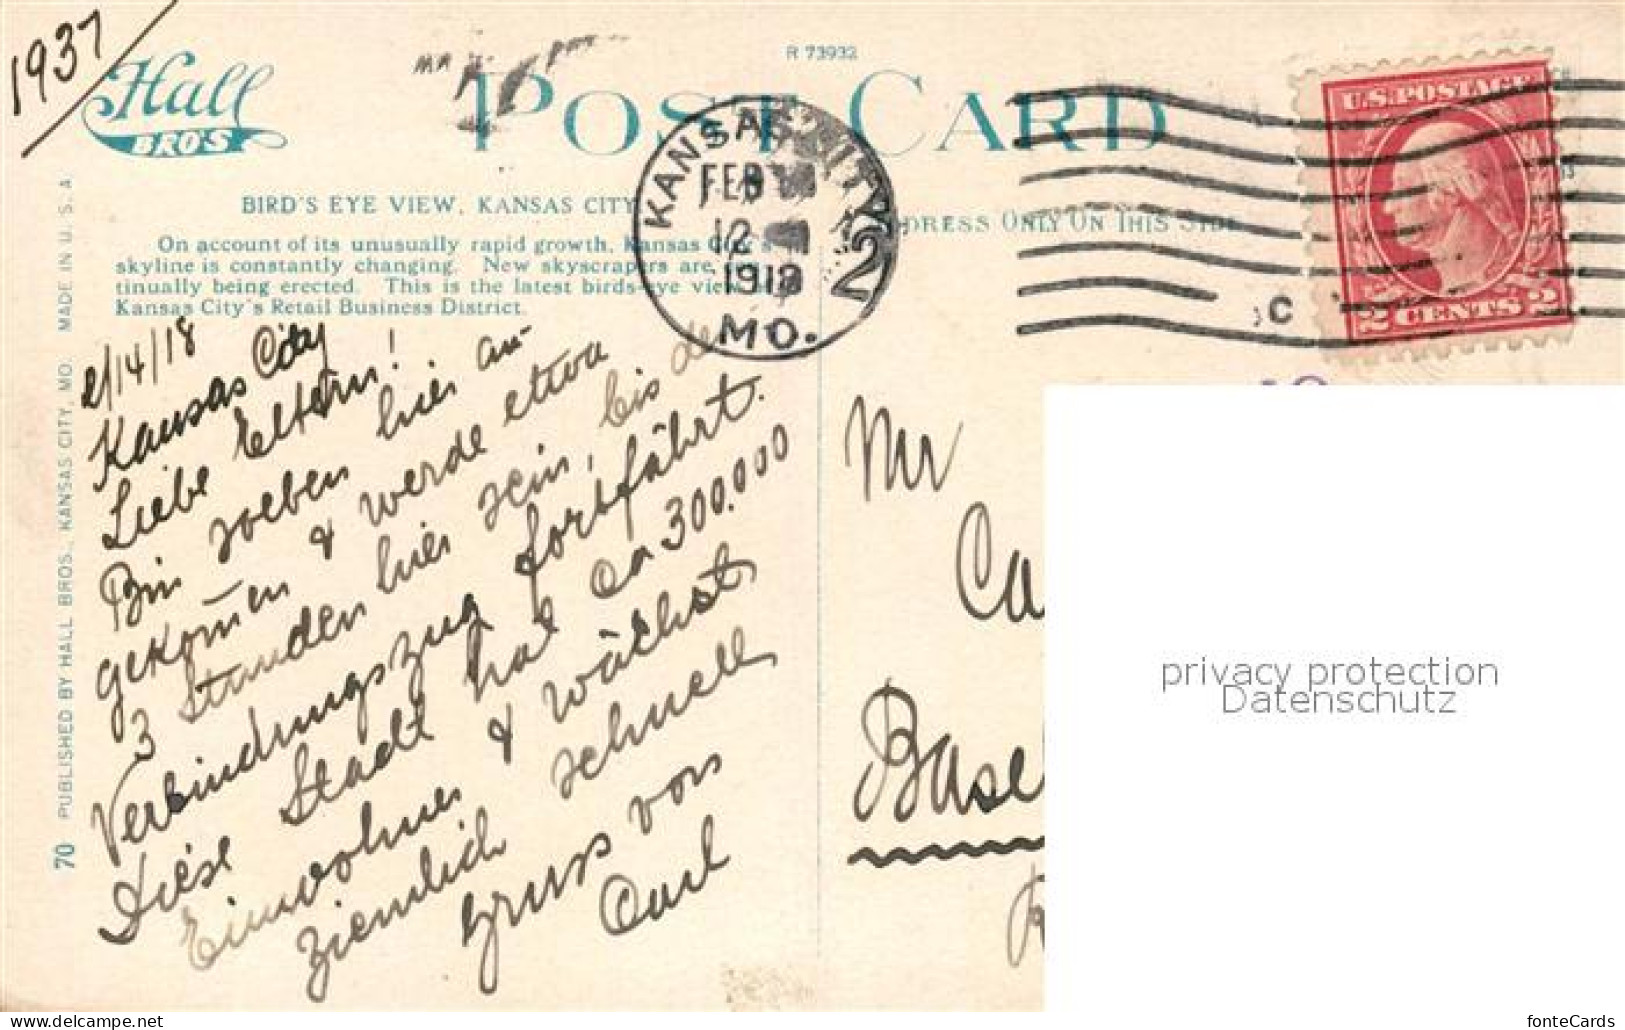 1937
Hall
BRO'S
R 73932
POST CARD
KANSAS CITY
FEB
12
1918
2
MO.
U.S. POSTAGE
2 CENTS 2
BIRD'S EYE VIEW, KANSAS CITY
DRESS ONLY ON THIS SIDE
On account of its unusually rapid growth, Kansas City's
skyline is constantly changing. New skyscrapers are
tinually being erected. This is the latest birds-eye view
Kansas City's Retail Business District.
MADE IN U. S. A
70 PUBLISHED BY HALL BROS., KANSAS CITY, MO.
2/14/18
Kansas City
Liebe Eltern!
Bin soeben hier an-
gekom̄en & werde etwa
3 Stunden hier sein, bis de
Verbindungszug fortfährt.
Diese Stadt hat ca 300.000
Einwohner & wächst
ziemlich schnell
Gruss von
Carl
Mr
Ca
Basel
privacy protection
Datenschutz
fonteCards
www.delcampe.net